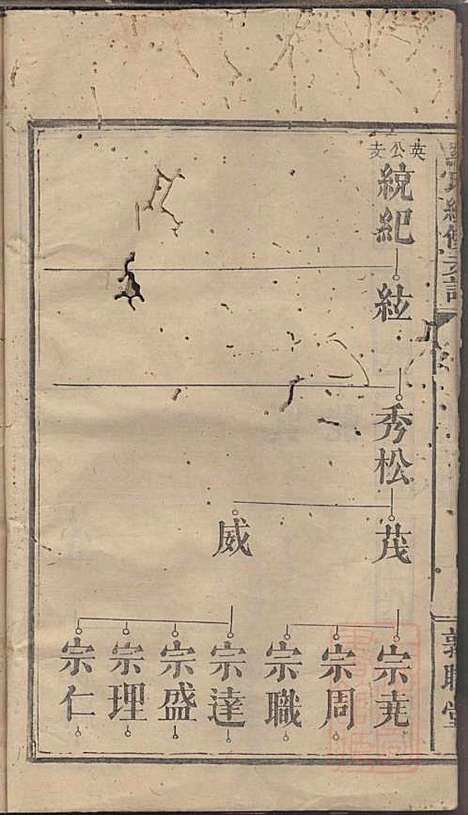 英公支
統紀
紘
秀松
茂
威
宗堯
宗周
宗職
宗達
宗盛
宗理
宗仁